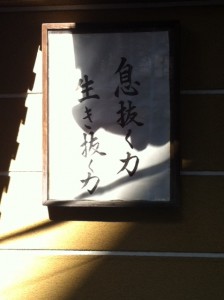 息抜く力
生き抜く力